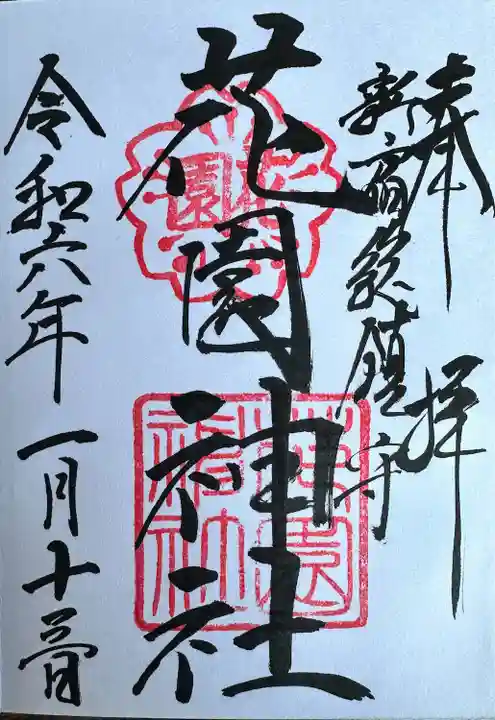 奉拝
新宿総鎮守
花園神社
花園
花園神社
令和六年一月十三日